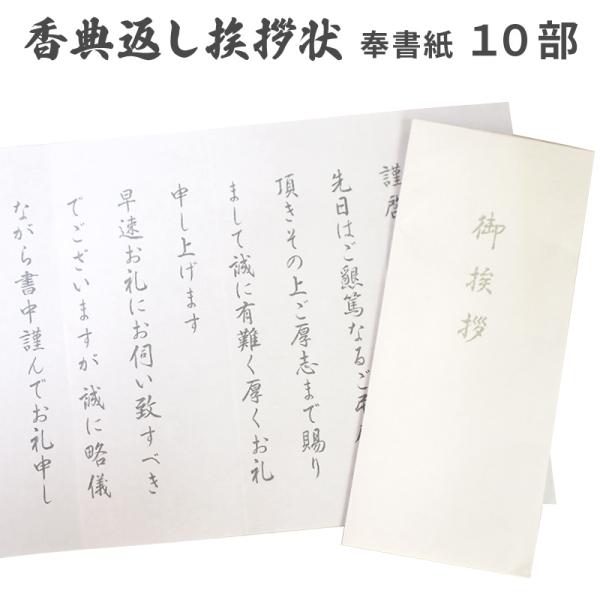 香典返し挨拶状 奉書紙 10部
謹啓
先日はご懇篤なるご弔
頂きその上ご厚志まで賜り
まして誠に有難く厚くお礼
申し上げます
早速お礼にお伺い致すべき
でございますが誠に略儀
ながら書中謹んでお礼申し
御挨拶